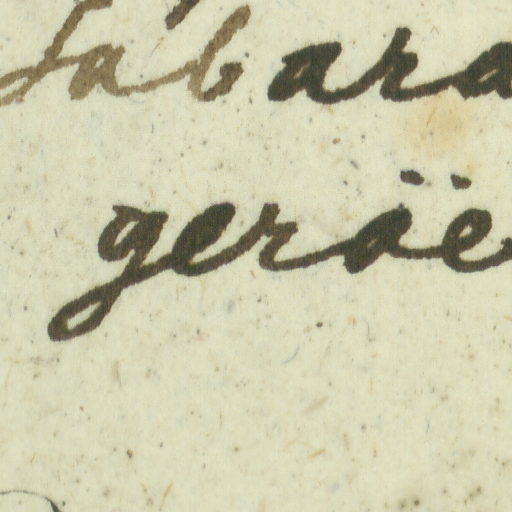 Sabara
geroë